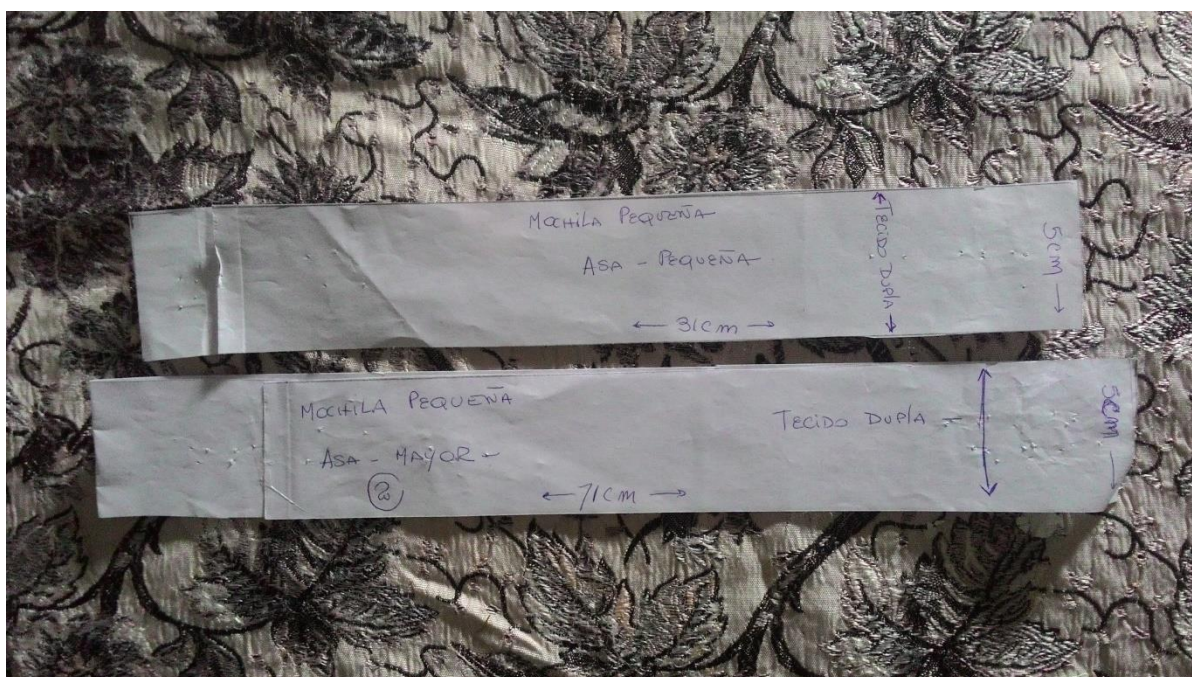 MOCHILA PEQUEÑA
ASA - PEQUEÑA
31cm
TECIDO DUPLA
5cm
MOCHILA PEQUEÑA
ASA - MAYOR -
2
71cm
TECIDO DUPLA
5cm